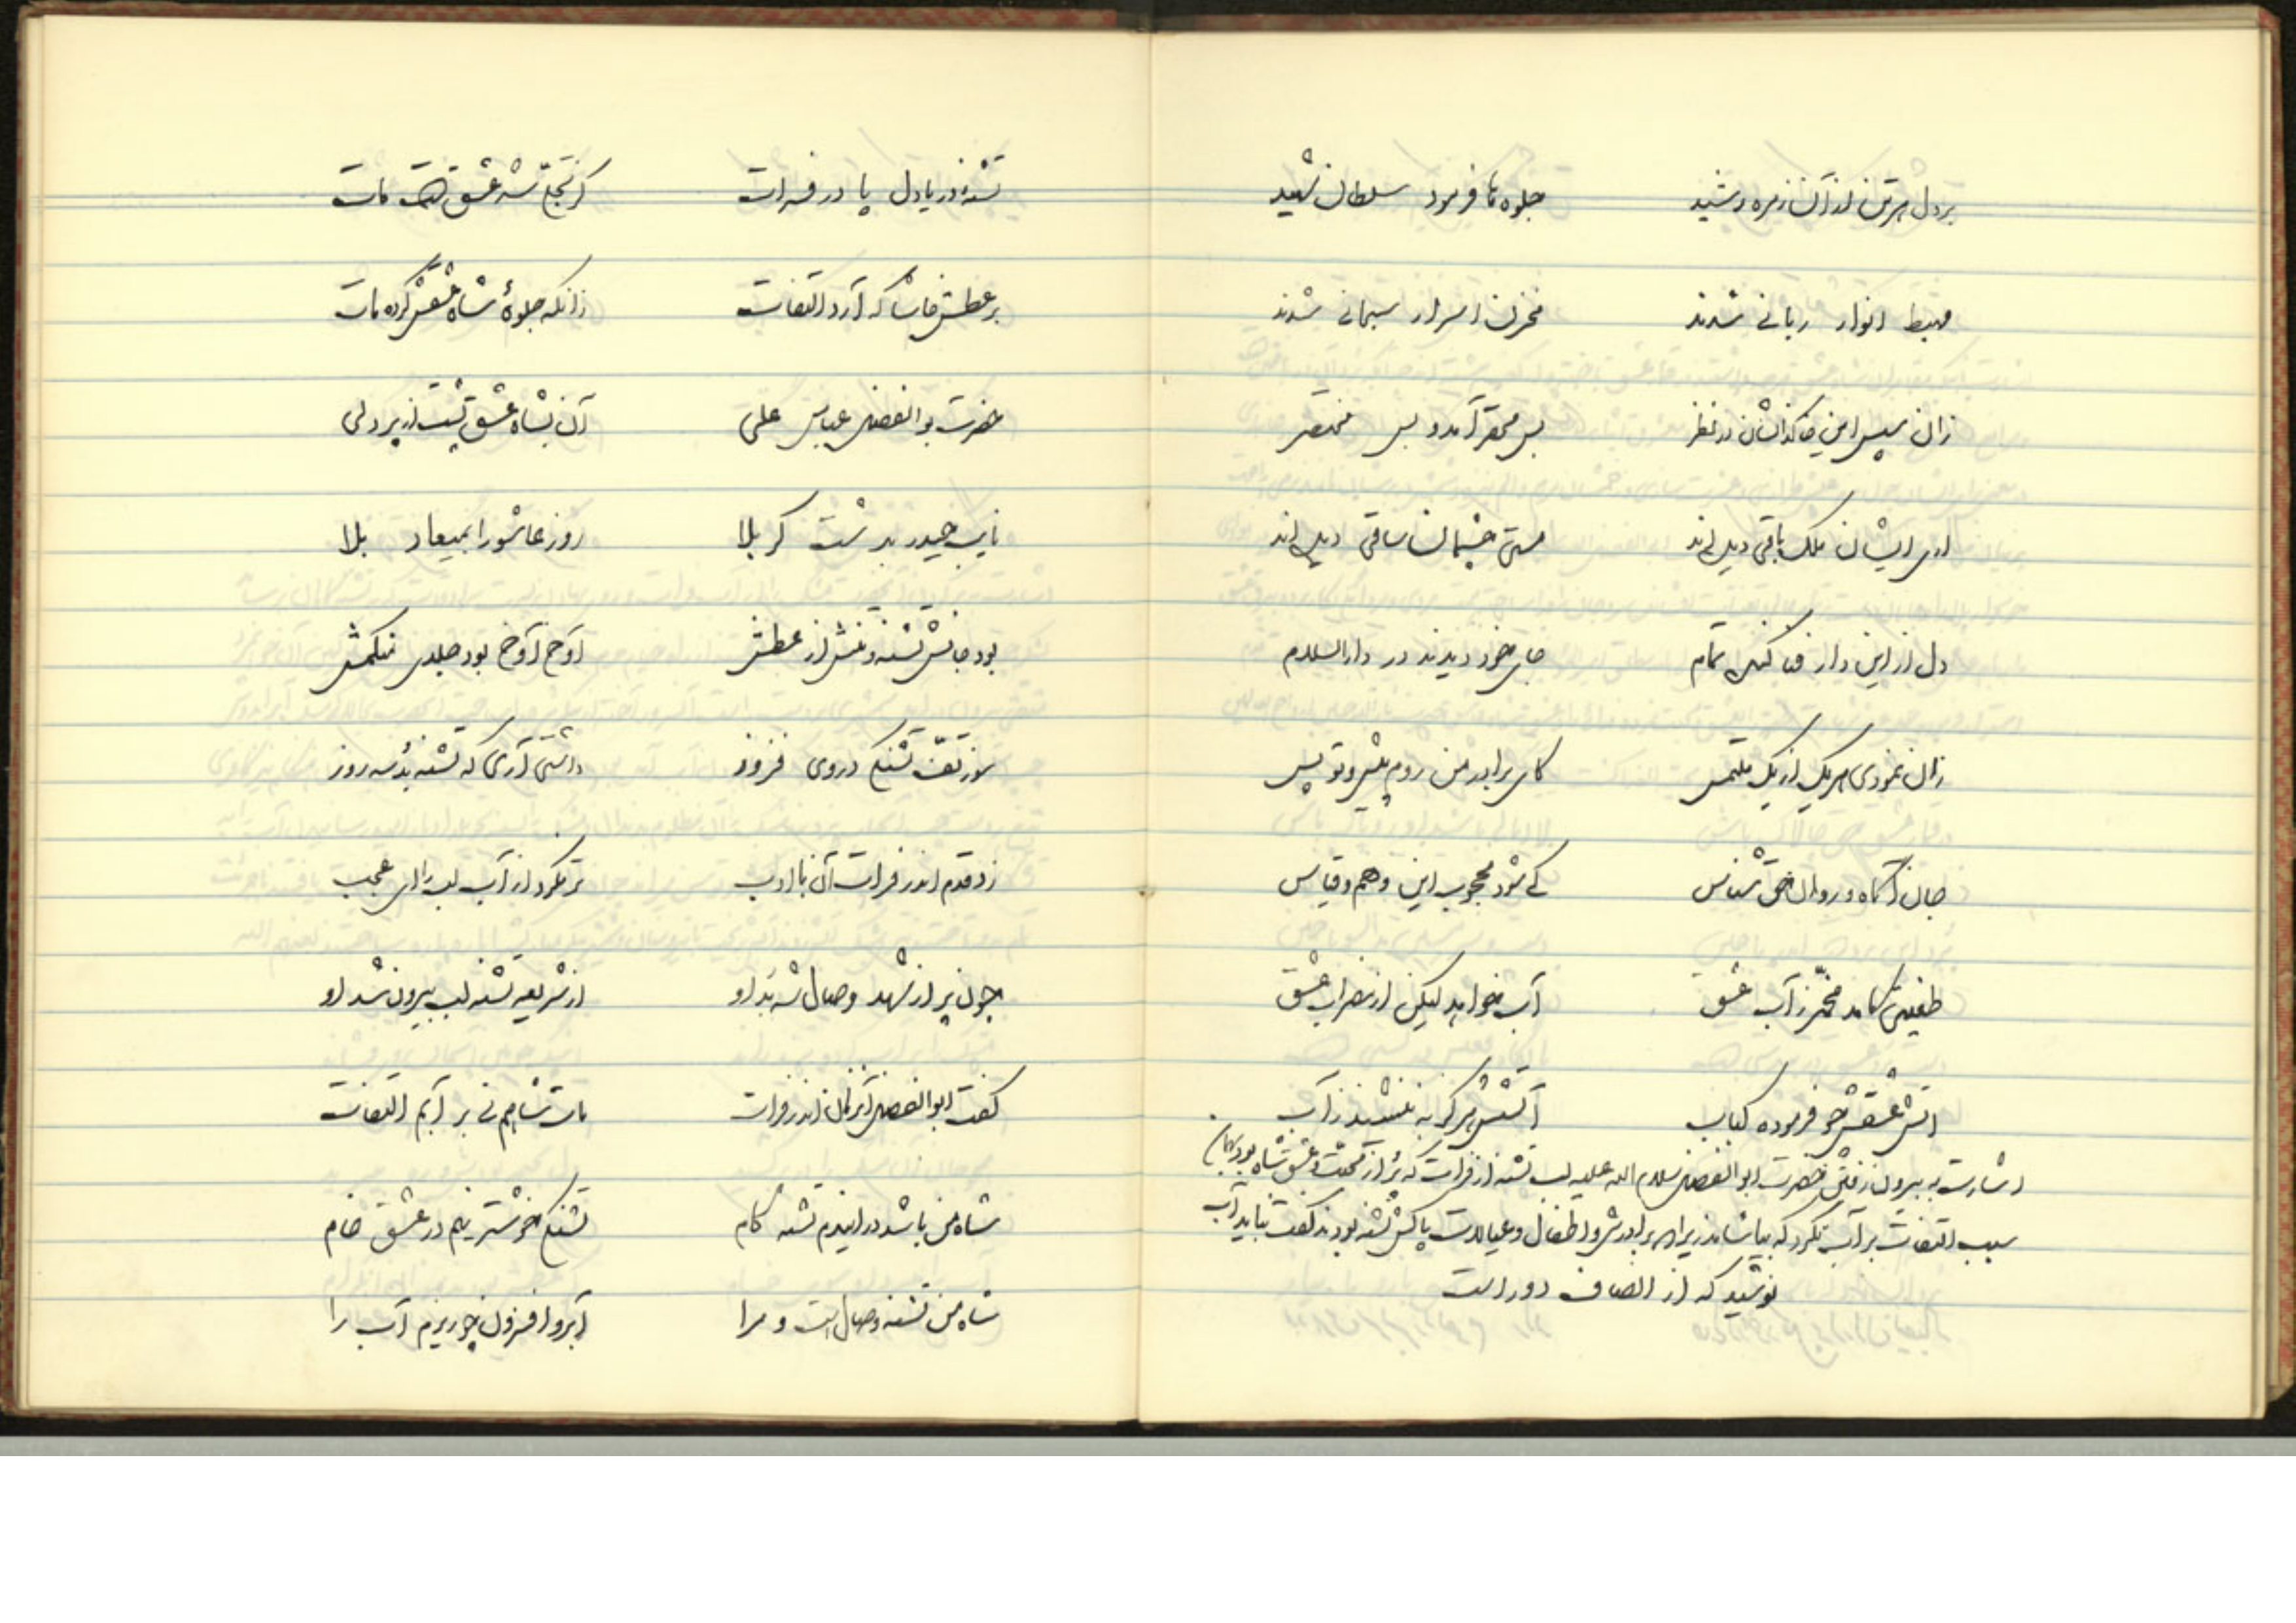 بر دل هر تن از آن زمره رشید جلوه‌ها فرمود سلطان شهید
مهبط انوار ربانی شدند مخزن اسرار سبحانی شدند
زان سپس این خاکدانشان در نظر بس محقر آمد و بس مختصر
ایشان ملک باقی دیده‌اند مستی چشمان ساقی دیده‌اند
دل از این دار فنا کنده تمام جای خود دیدند در دارالسلام
زان نمودی هر یک از یک ملتمس کای برادر من روم پیش و تو پس
جان آگاه و روان حق شناس کی شود محجوب این وهم و قیاس
طفلشان کامد مخمّر ز آب عشق آب میخواهد لیکن از عشق
آتش عشقش چو فرموده کباب آتشش هرگز به ننشیند ز آب
اشارت به بیرون رفتن حضرت ابوالفضل سلام الله علیه لب تشنه از فرات که پر از محبت و عشق شاه بود
سبب التفات بر آب نکرد که بیاشامد زیرا برادرش و اطفال و عیالات پاکش تشنه بودند گفت نباید آب
نوشید که از انصاف دور است
تشنهٔ دریا دل پا در فرات کز تجلّی شه عشق است مات
بر عطش حاشا که آرد التفات زانکه جلوهٔ شاه عشقش کرده مات
حضرت بوالفضل عباس علی آن بشاه عشق پشت از پر دلی
نایب حیدر بدشت کربلا روز عاشورا بمیعاد بلا
بود جانش تشنه و تنش از عطش آوخ آوخ بود جلدی
سوز تفّ تشنگی در وی فزوز داشتی آری که تشنه بد سه روز
زد قدم اندر فرات آن با ادب تر نکرد از آب لب را ای عجب
چون پر از شهد وصال شه بد او از شریعه تشنه لب بیرون شد او
گفت ابوالفضل آنزمان اندر فرات مات شاهم نی بر آبم التفات
شاه من باشد در ایندم تشنه کام تشنگی خوشتر نیم در عشق خام
شاه من تشنه وصال است و مرا آبرو افزون چو ریزم آب را